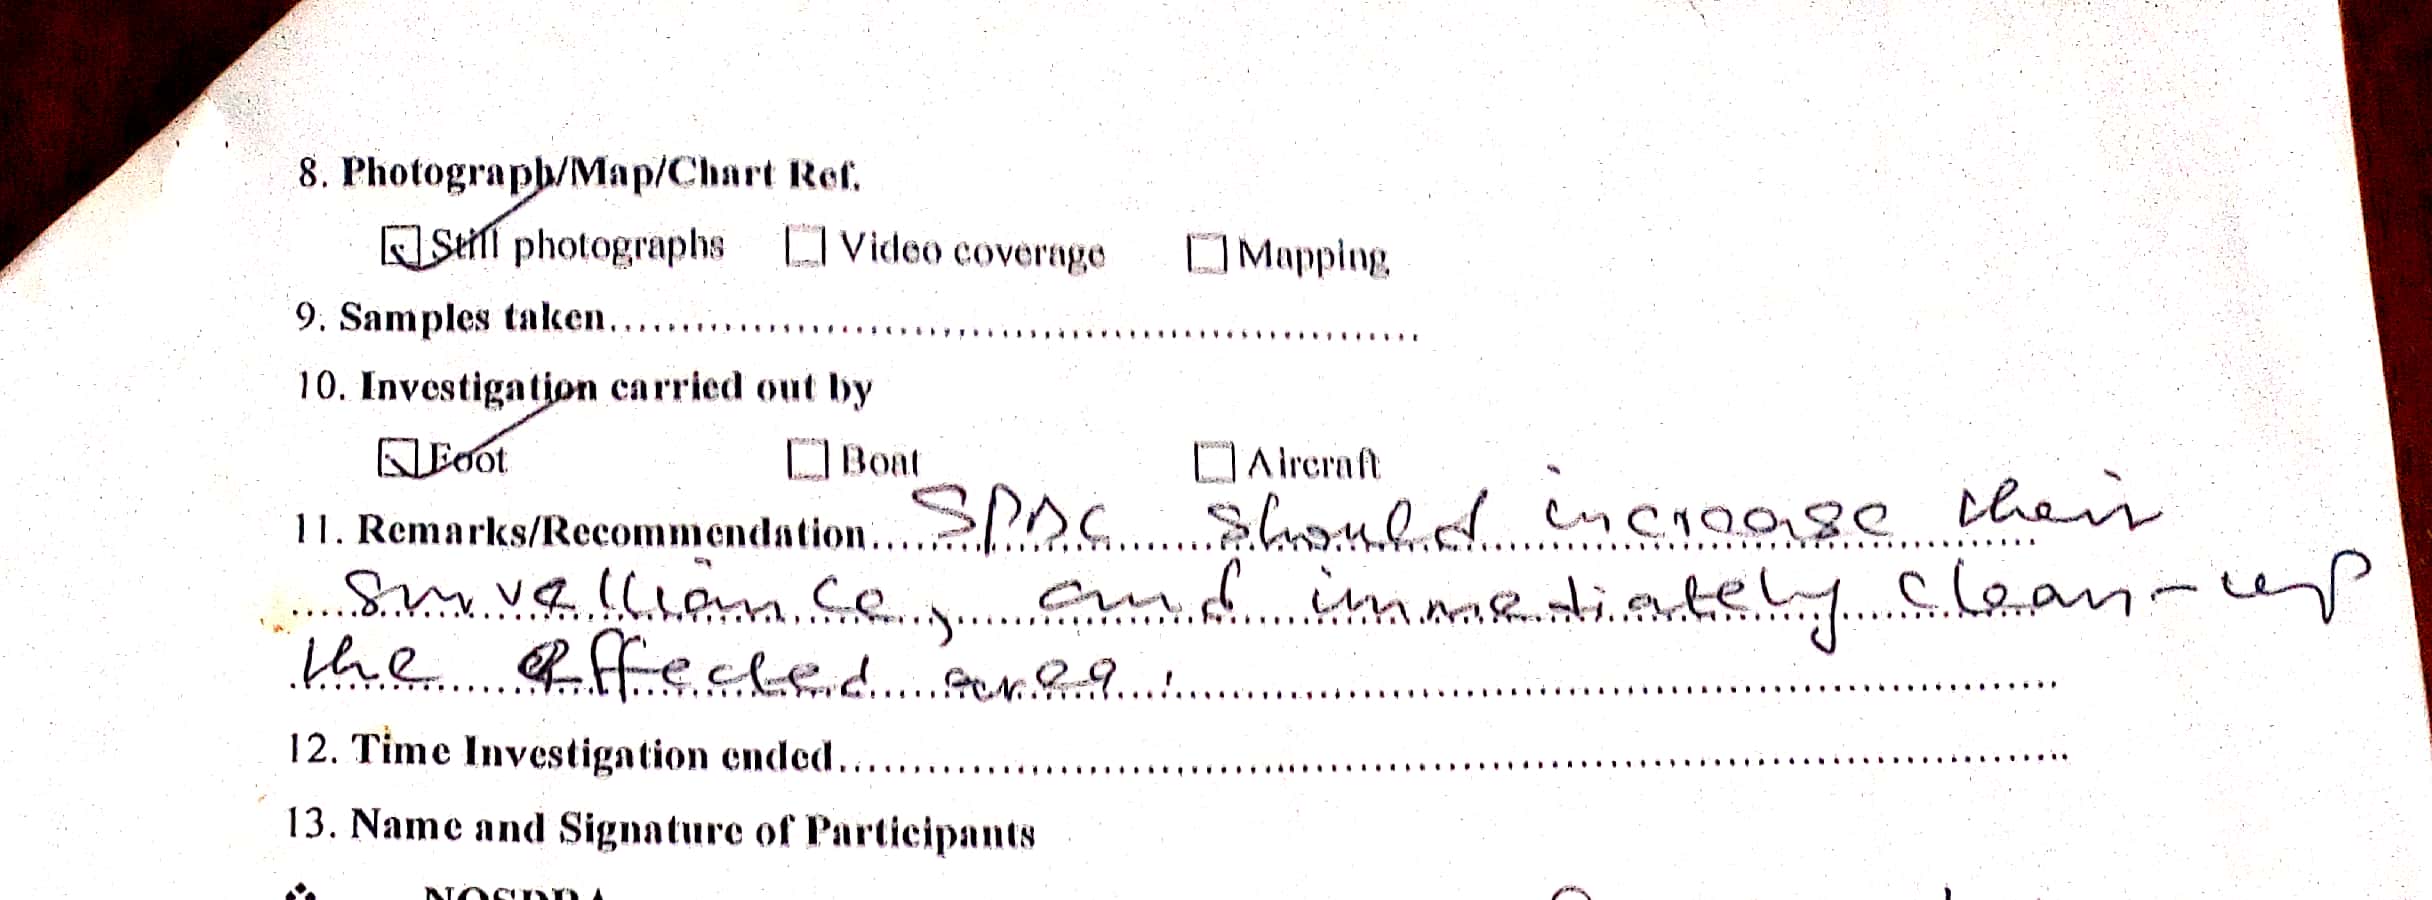 8. Photograph/Map/Chart Ref.
Still photographs Video coverage Mapping
9. Samples taken
10. Investigation carried out by
Foot Boat Aircraft
11. Remarks/Recommendation SPDC should increase their
survelliance, and immediately clean-up
the effected area.
12. Time Investigation ended
13. Name and Signature of Participants
NOSDRA